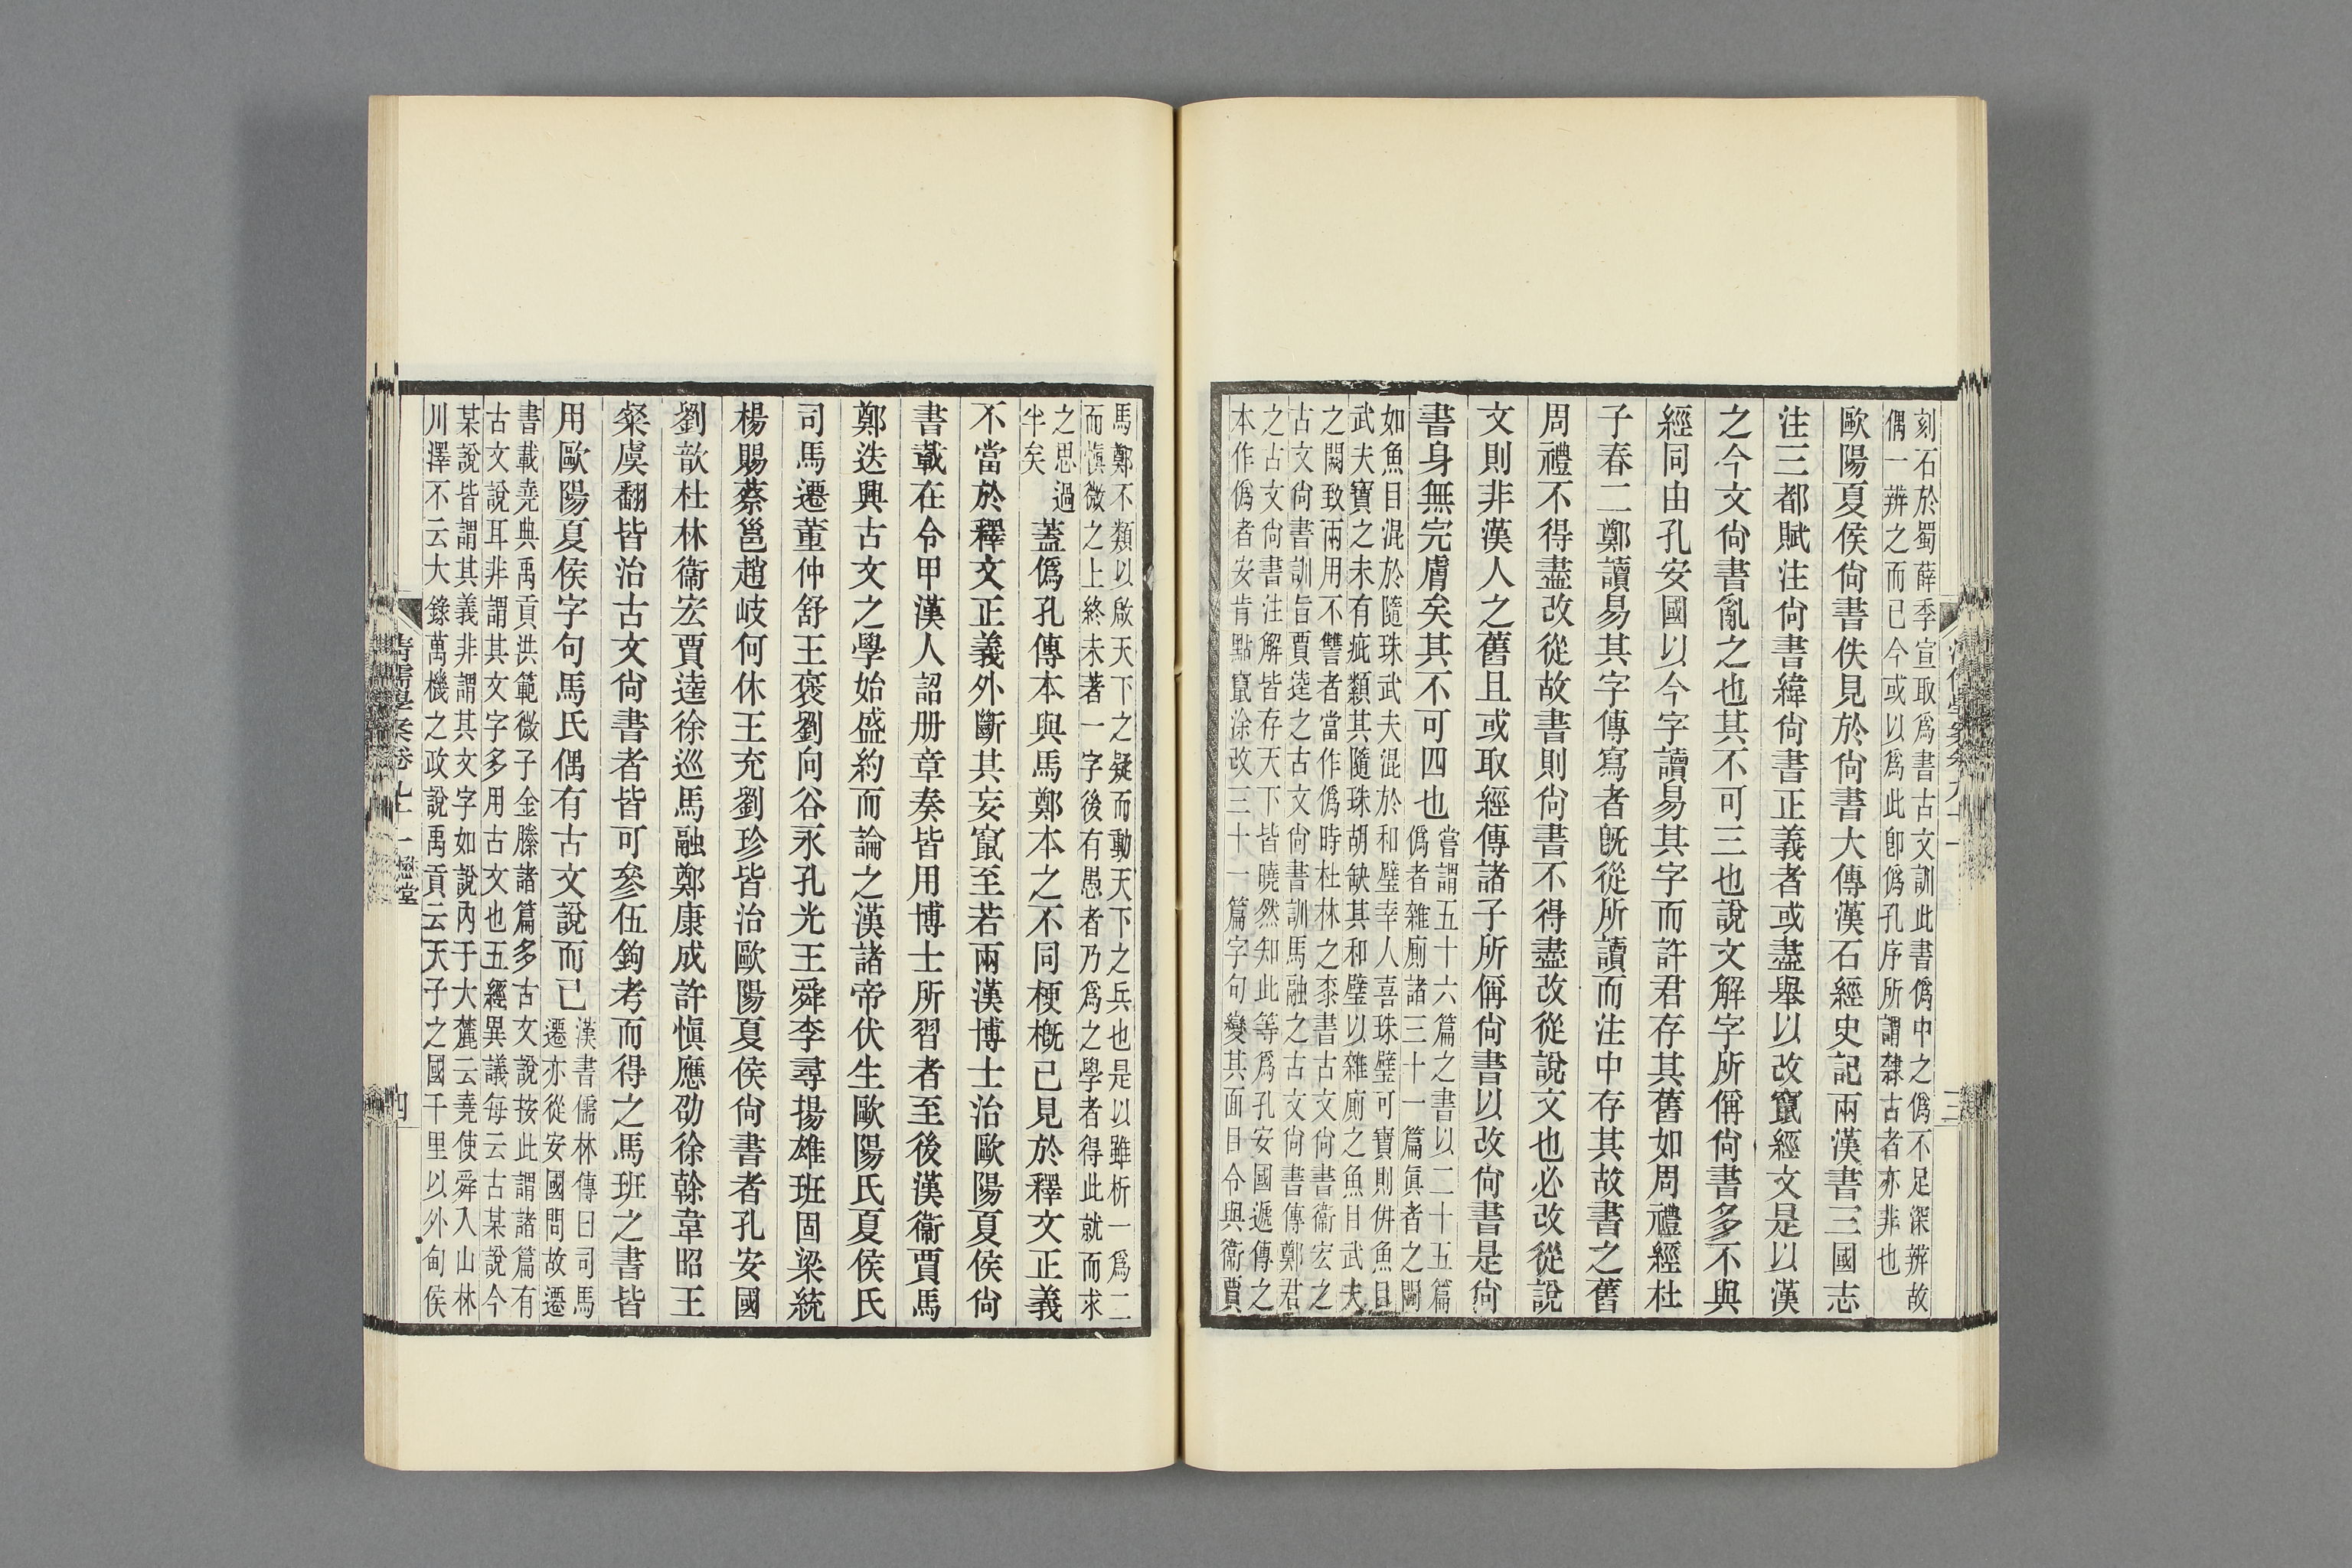 刻石於蜀薛季宣取爲書古文訓此書僞中之僞不足深辨故
偶一辨之而已今或以爲此卽僞孔序所謂隸古者亦非也
歐陽夏侯尙書佚見於尙書大傳漢石經史記兩漢書三國志
注三都賦注尙書緯尙書正義者或盡舉以改竄經文是以漢
之今文尙書亂之也其不可三也說文解字所偁尙書多不與
經同由孔安國以今字讀易其字而許君存其舊如周禮經杜
子春二鄭讀易其字傳寫者旣從所讀而注中存其故書之舊
周禮不得盡改從故書則尙書不得盡改從說文也必改從說
文則非漢人之舊且或取經傳諸子所偁尙書以改尙書是尙
書身無完膚矣其不可四也
嘗謂五十六篇之書以二十五篇
僞者雜廁諸三十一篇眞者之閒
如魚目混於隨珠武夫混於和璧幸人喜珠璧可寶則倂魚目
武夫寶之未有疵纇其隨珠胡缺其和璧以雜廁之魚目武夫
之闕致兩用不讐者當作僞時杜林之桼書古文尙書衞宏之
古文尙書訓旨賈逵之古文尙書訓馬融之古文尙書傳鄭君
之古文尙書注解皆存天下皆曉然知此等爲孔安國遞傳之
本作僞者安肯點竄涂改三十一篇字句變其面目令與衞賈
馬鄭不類以啟天下之疑而動天下之兵也是以雖析一爲二
而愼微之上終未著一字後有愚者乃爲之學者得此就而求
之思過
半矣
蓋僞孔傳本與馬鄭本之不同梗槪已見於釋文正義
不當於釋文正義外斷其妄竄至若兩漢博士治歐陽夏侯尙
書載在令甲漢人詔册章奏皆用博士所習者至後漢衞賈馬
鄭迭興古文之學始盛約而論之漢諸帝伏生歐陽氏夏侯氏
司馬遷董仲舒王褒劉向谷永孔光王舜李尋揚雄班固梁統
楊賜蔡邕趙岐何休王充劉珍皆治歐陽夏侯尙書者孔安國
劉歆杜林衞宏賈逵徐巡馬融鄭康成許愼應劭徐幹韋昭王
粲虞翻皆治古文尙書者皆可參伍鉤考而得之馬班之書皆
用歐陽夏侯字句馬氏偶有古文說而已
漢書儒林傳曰司馬
遷亦從安國問故遷
書載堯典禹貢洪範微子金縢諸篇多古文說按此謂諸篇有
古文說耳非謂其文字多用古文也五經異議每云古某說今
某說皆謂其義非謂其文字如說內于大麓云堯使舜入山林
川澤不云大錄萬機之政說禹貢云天子之國千里以外甸侯
清儒學案卷九十一 懋堂
四